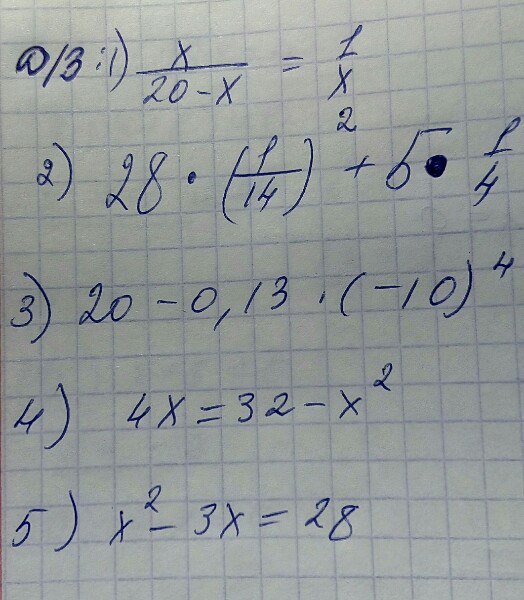 Д/З: 1) x/(20-x) = 1/x
2) 28 · (1/14)² + 5 · 1/4
3) 20 - 0,13 · (-10)⁴
4) 4x = 32 - x²
5) x² - 3x = 28